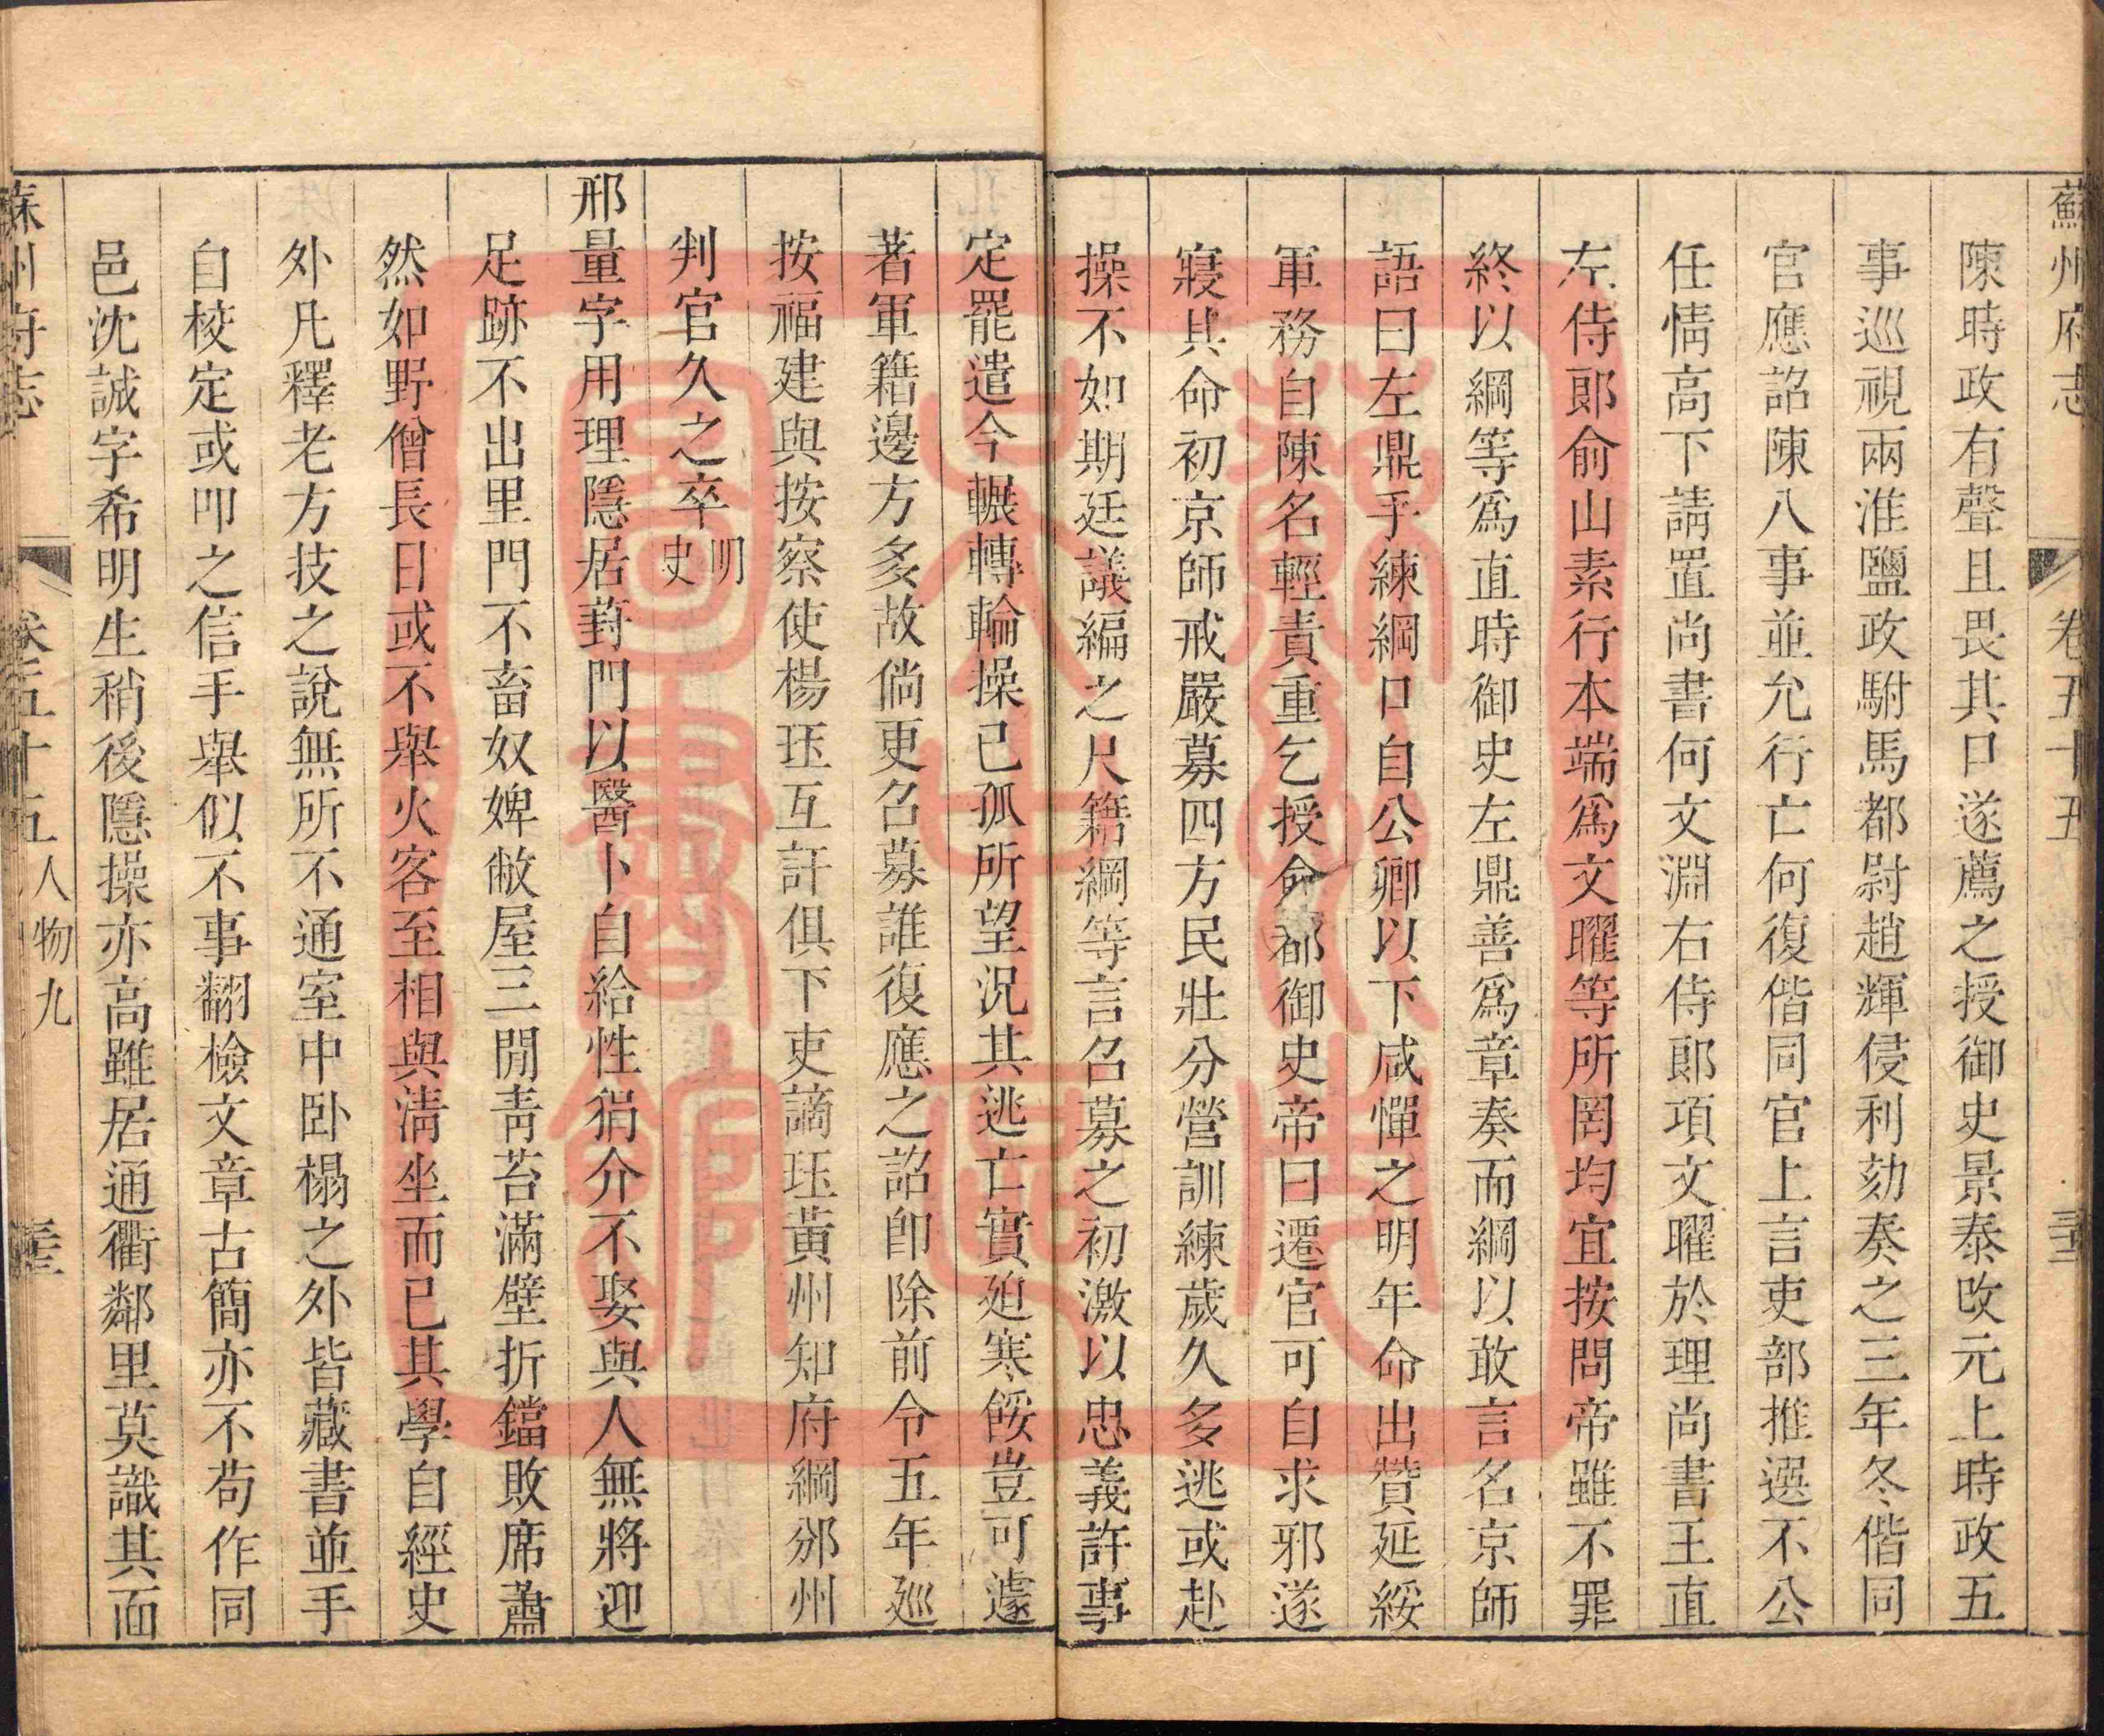 蘇州府志 卷五十五
陳時政有聲且畏其口遂薦之授御史景泰改元上時政五
事巡視兩淮鹽政駙馬都尉趙輝侵利劾奏之三年冬偕同
官應詔陳八事並允行亡何復偕同官上言吏部推選不公
任情高下請置尚書何文淵右侍郎項文曜於理尚書王直
左侍郎俞山素行本端爲文曜等所罔均宜按問帝雖不罪
終以綱等爲直時御史左鼎善爲章奏而綱以敢言名京師
語曰左鼎手練綱口自公卿以下咸憚之明年命出贊延綏
軍務自陳名輕責重乞授僉都御史帝曰遷官可自求邪遂
寢其命初京師戒嚴募四方民壯分營訓練歲久多逃或赴
操不如期廷議編之尺籍綱等言召募之初激以忠義許事
定罷遣今輾轉輪操已孤所望況其逃亡實迫寒餒豈可遽
著軍籍邊方多故倘更召募誰復應之詔卽除前令五年巡
按福建與按察使楊珏互訐俱下吏謫珏黃州知府綱邠州
判官久之卒明史
邢量字用理隱居葑門以醫卜自給性狷介不娶與人無將迎
足跡不出里門不畜奴婢敝屋三間青苔滿壁折鐺敗席蕭
然如野僧長日或不舉火客至相與清坐而已其學自經史
外凡釋老方技之說無所不通室中卧榻之外皆藏書並手
自校定或叩之信手舉似不事翻檢文章古簡亦不苟作同
邑沈誠字希明生稍後隱操亦高雖居通衢鄰里莫識其面
蘇州府志 卷五十五 人物九